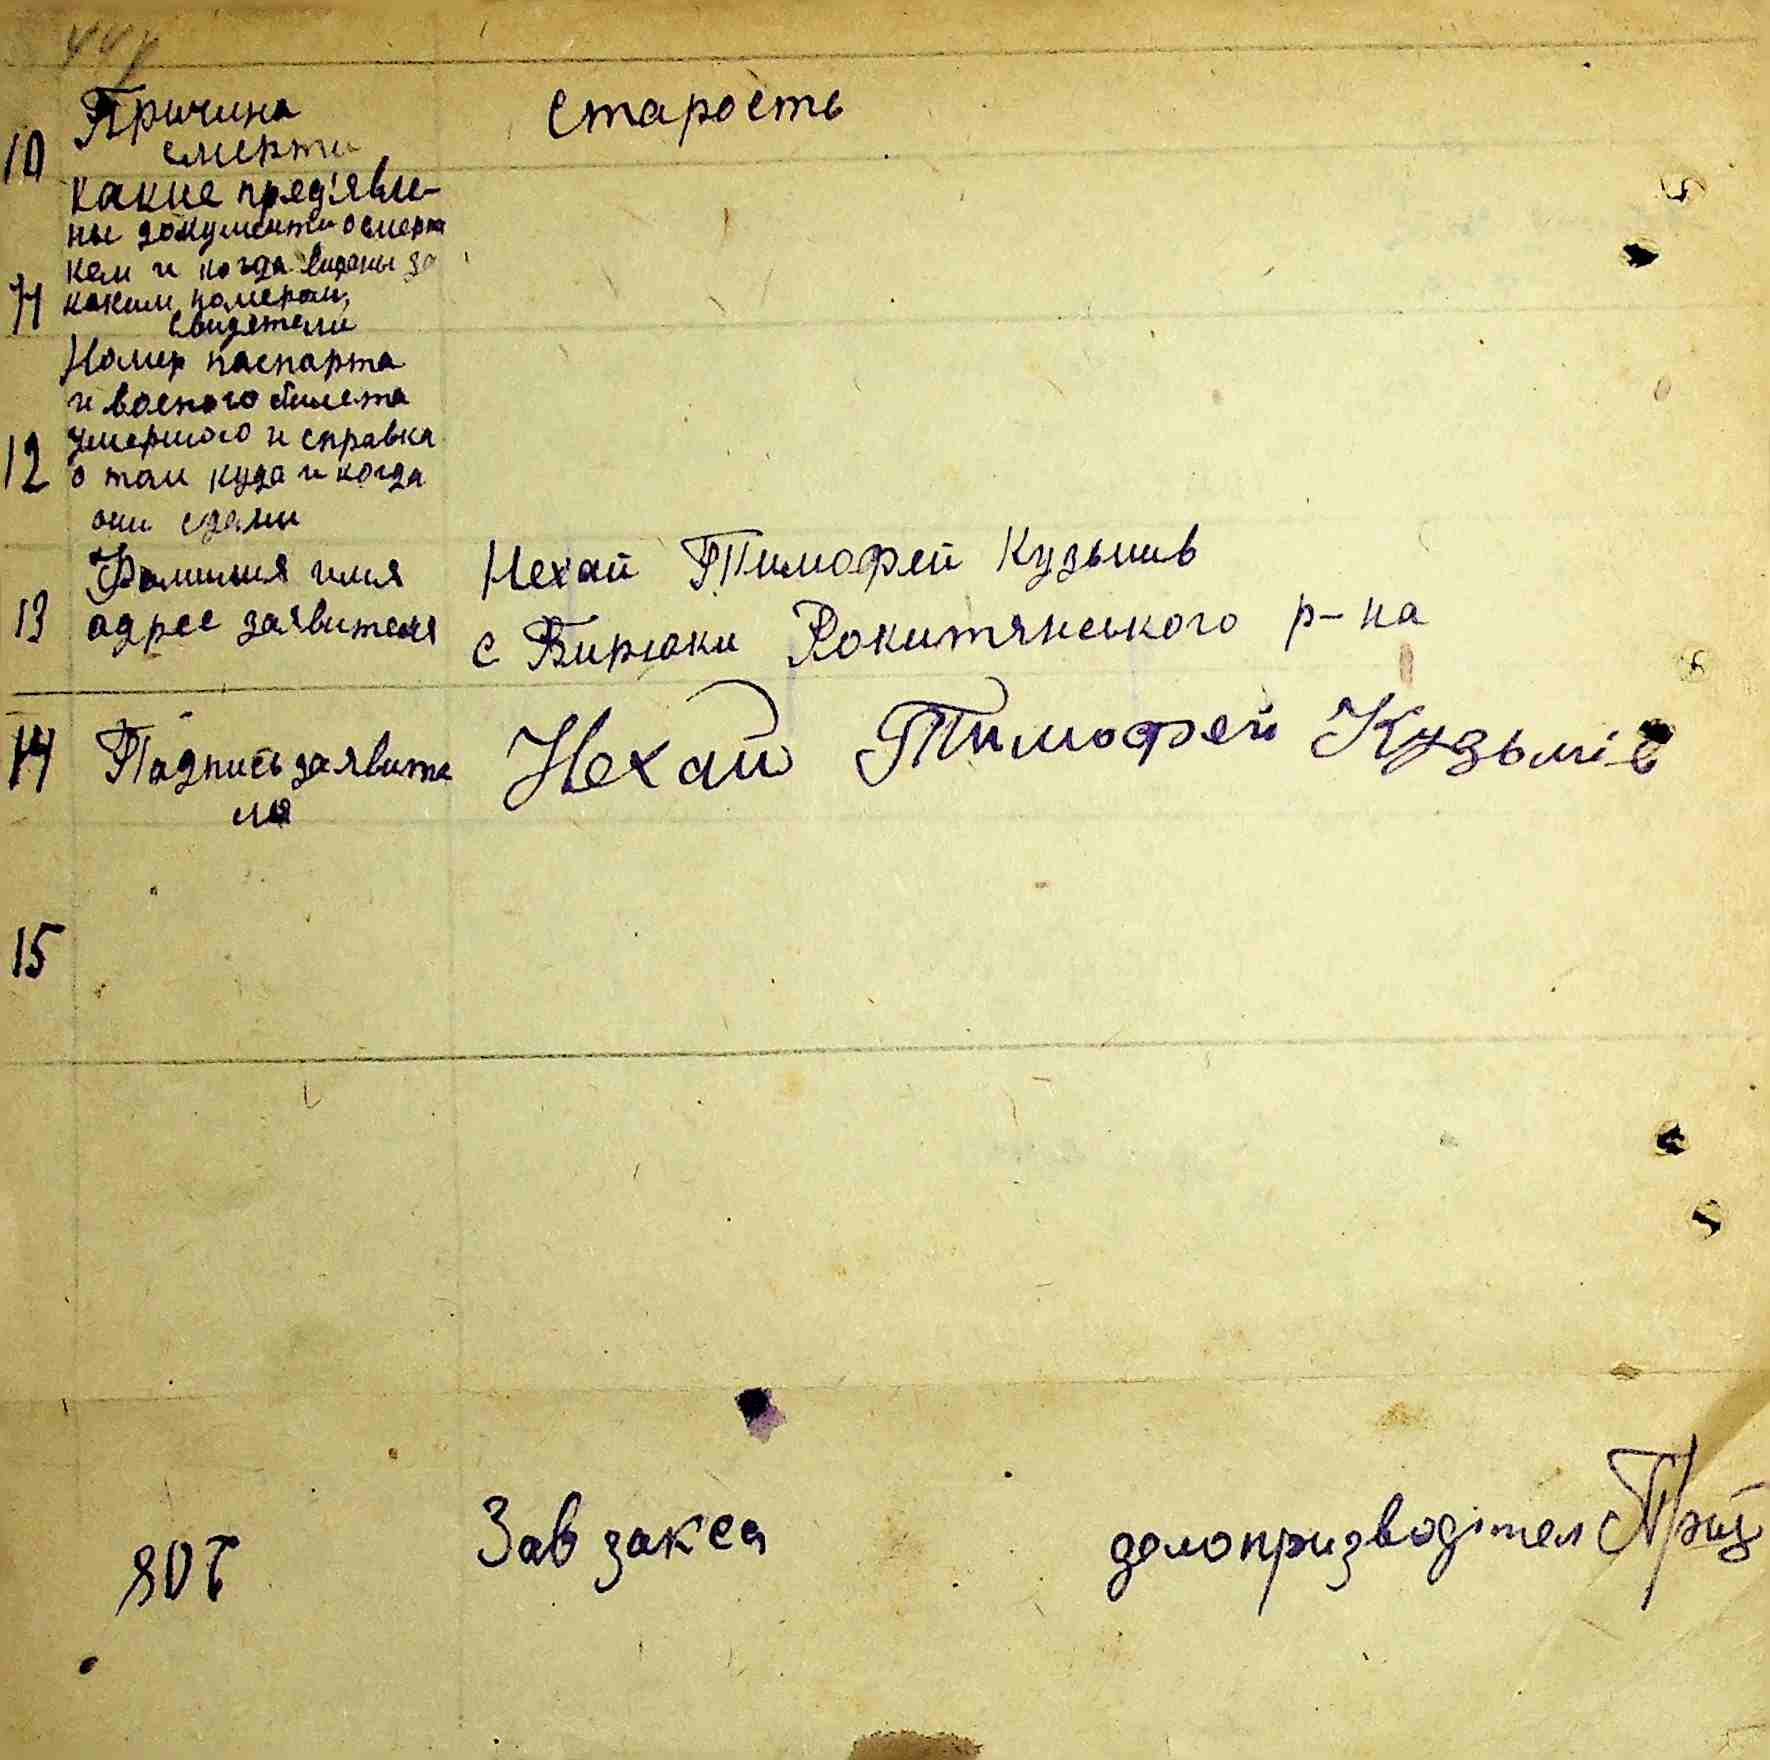 10 Причина смерти
Старость
какие пред'явле-
ны документи о смерти
кем и когда видани за
11 каким номером,
свидетели
Номер паспорта
и военого билета
12 умершого и справка
о том куда и когда
они сдани
13 Фамилия имя
адрес заявителя
Нехай Тимофей Кузьмив
с Бирюки Рокитянського р-на
14 Подпись заявите
ля
Нехай Тимофей Кузьмів
15
Зав закса
делопризводител